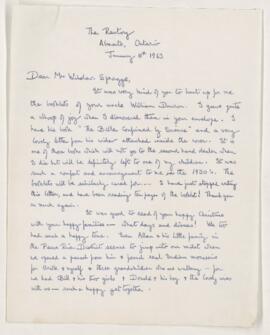 The Rectory
Almonte, Ontario
January 8th 1963
Dear Mr Wilder Spragge,
It was very kind of you to hunt up for me
the booklets of your uncle William Dawson. I gave quite
a whoop of joy when I discovered them in your envelope. I
have his book "The Bible Confirmed by Science" and a very
lovely letter from his widow attached inside the cover. It is
one of those books which will not go to the second hand dealer when
I die but will be definitely left to one of my children. It was
such a comfort and encouragement to me in the 1920's. The
booklets will be similarly cared for --- I have just stopped writing
this letter, and have been reading ten pages of the booklet! Thank you
so much again.
It was good to read of your happy Christmas
with your happy families — what days and drives! We too
had such a happy time. Even Allan & his little family in
the Peace River District seems to jump into our midst when
we opened a parcel from him & found real Indian moccasins
for Beth & myself & three grandchildren who are walking - for
we had Bill & his two girls & David & his boy & the Lord was
with us — such a happy get together.